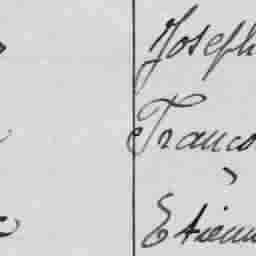 Joseph
Franco
Etienn